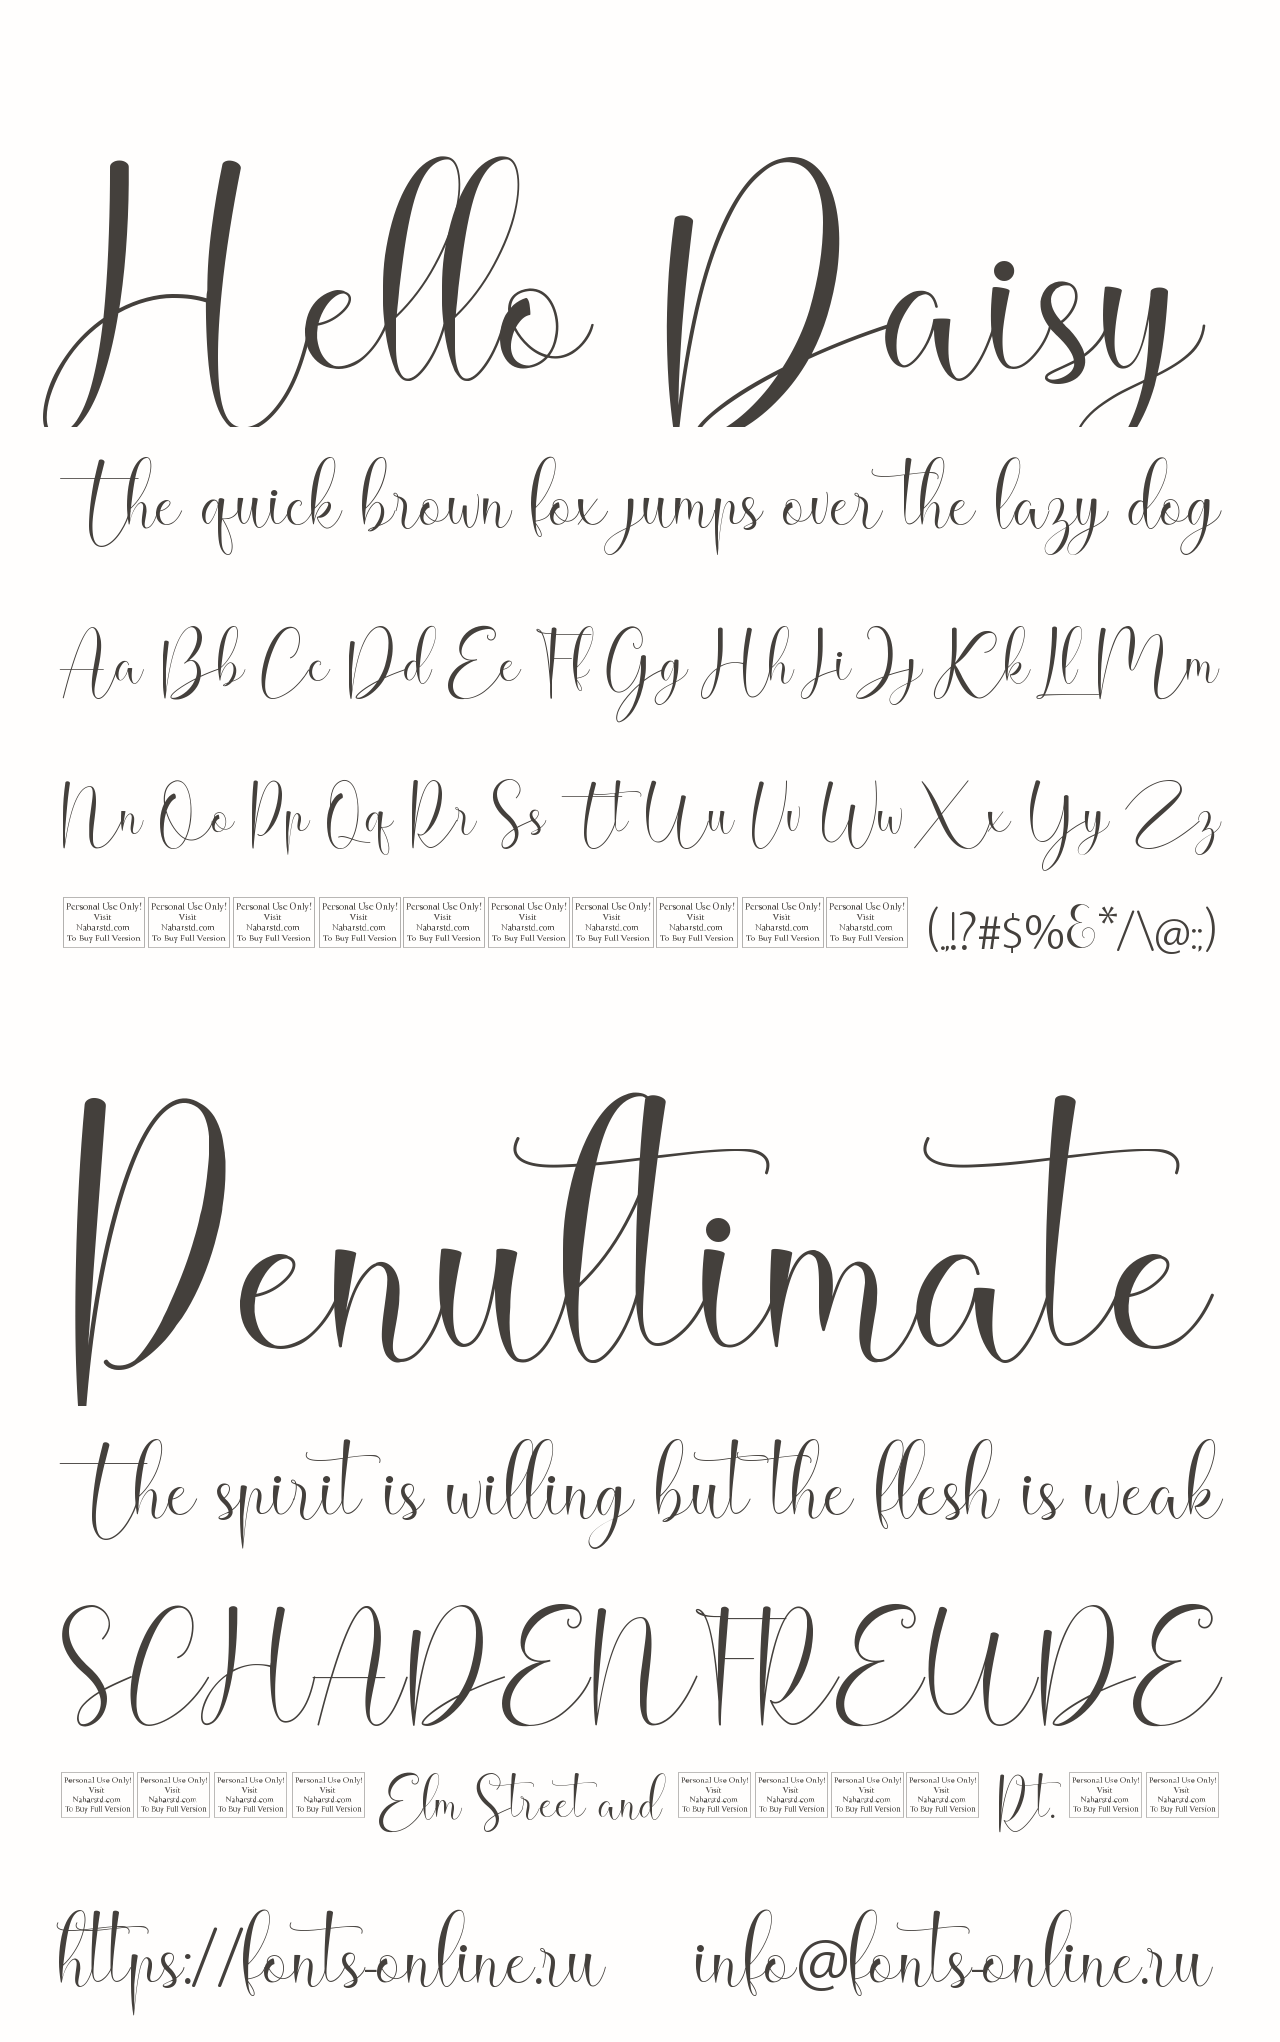 Hello Daisy
The quick brown fox jumps over the lazy dog
Aa Bb Cc Dd Ee Ff Gg Hh Ii Jj Kk Ll Mm
Nn Oo Pp Qq Rr Ss Tt Uu Vv Ww Xx Yy Zz
Personal Use Only! Personal Use Only! Personal Use Only! Personal Use Only! Personal Use Only! Personal Use Only! Personal Use Only! Personal Use Only! Personal Use Only! Personal Use Only!
Visit Visit Visit Visit Visit Visit Visit Visit Visit Visit
Naharstd.com Naharstd.com Naharstd.com Naharstd.com Naharstd.com Naharstd.com Naharstd.com Naharstd.com Naharstd.com Naharstd.com
To Buy Full Version To Buy Full Version To Buy Full Version To Buy Full Version To Buy Full Version To Buy Full Version To Buy Full Version To Buy Full Version To Buy Full Version To Buy Full Version
(.,!?#$%&*/\@:;)
Penultimate
The spirit is willing but the flesh is weak
SCHADENFREUDE
Personal Use Only! Personal Use Only! Personal Use Only! Personal Use Only!
Visit Visit Visit Visit
Naharstd.com Naharstd.com Naharstd.com Naharstd.com
To Buy Full Version To Buy Full Version To Buy Full Version To Buy Full Version
Elm Street and
Personal Use Only! Personal Use Only! Personal Use Only! Personal Use Only!
Visit Visit Visit Visit
Naharstd.com Naharstd.com Naharstd.com Naharstd.com
To Buy Full Version To Buy Full Version To Buy Full Version To Buy Full Version
Rt.
Personal Use Only! Personal Use Only!
Visit Visit
Naharstd.com Naharstd.com
To Buy Full Version To Buy Full Version
https://fonts-online.ru info@fonts-online.ru